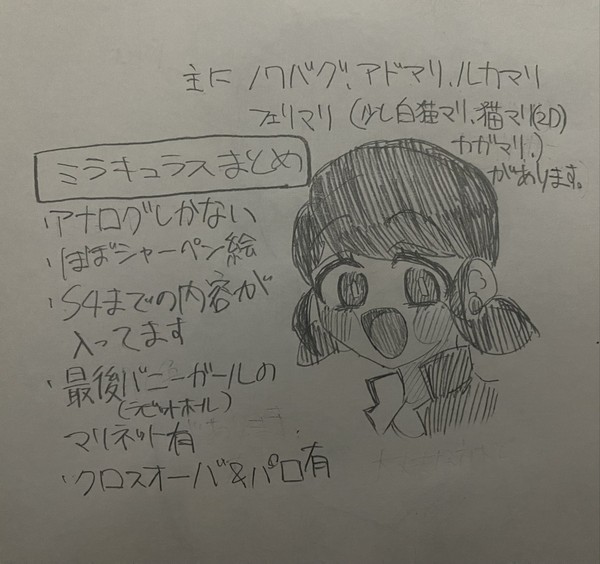 主に ノワバグ、アドマリ、ルカマリ
フェリマリ (少し白猫マリ、猫マリ(2D)
カガマリ、)
があります。
ミラキュラスまとめ
・アナログしかない
・ほぼシャーペン絵
・S4までの内容が
入ってます
・最後バニーガールの
(ラビットホール)
マリネット有
・クロスオーバ&パロ有